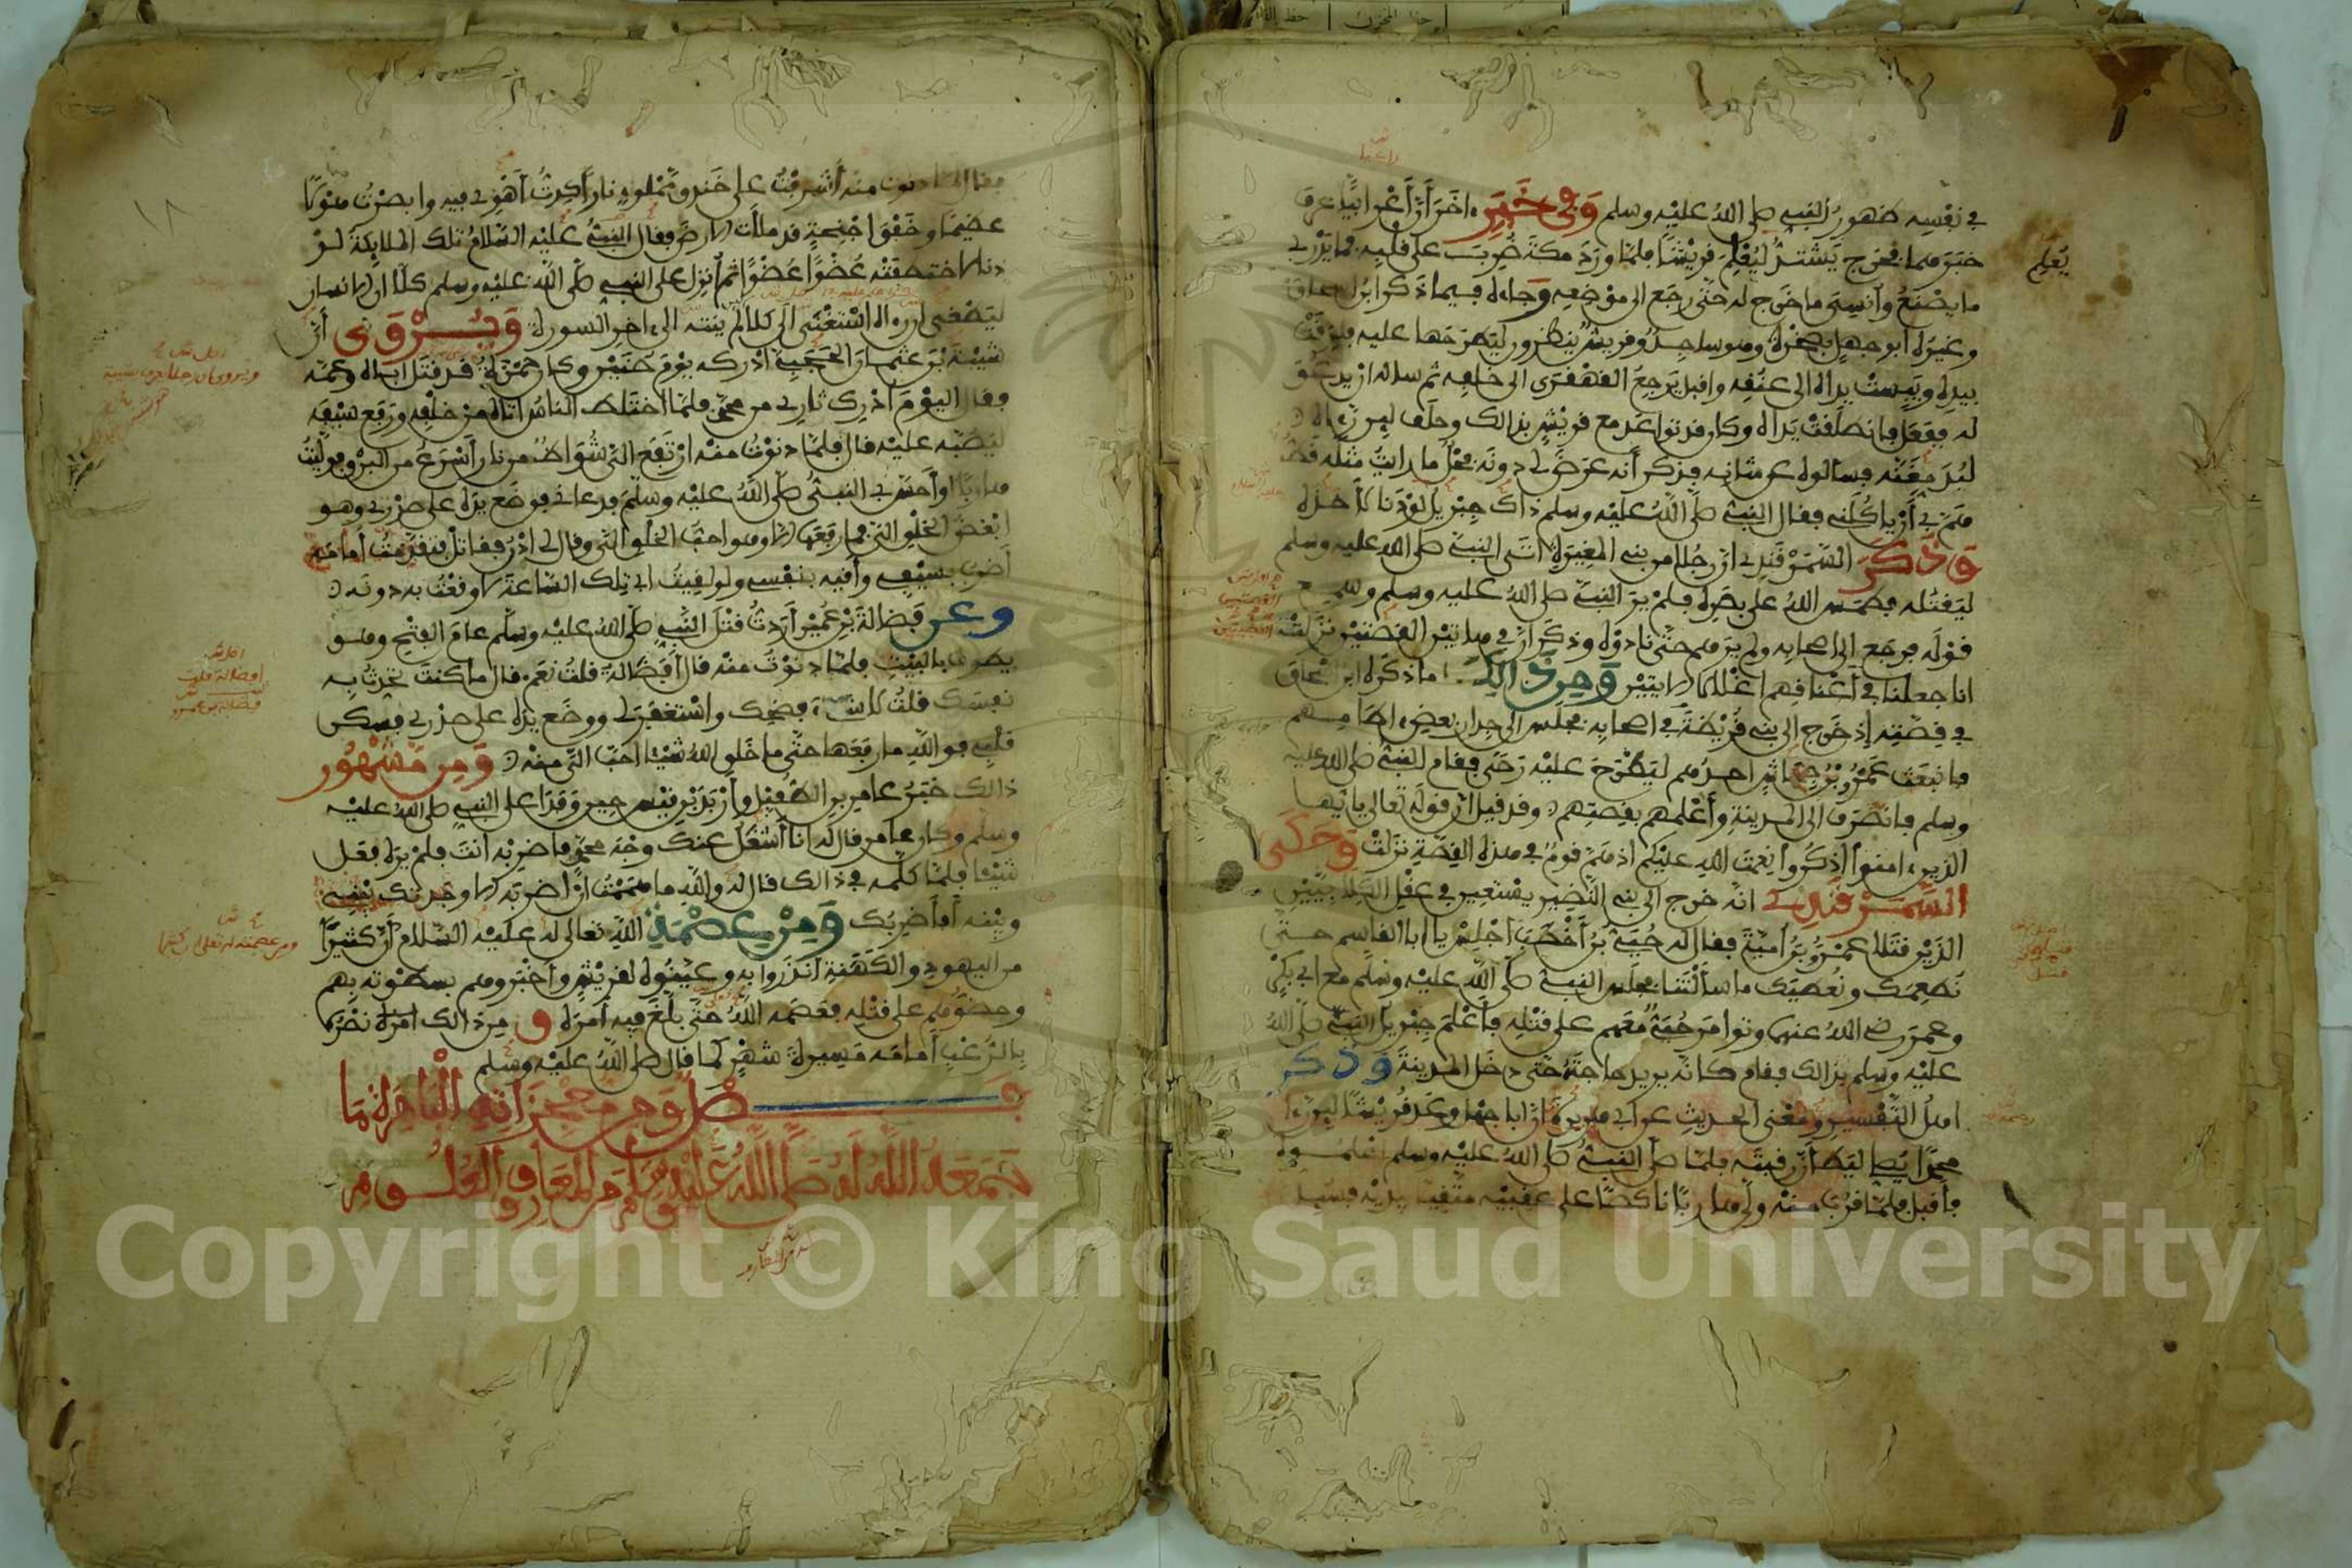 في نفسه ظهور النبي صلى الله عليه وسلم وفي خبر اخر ان أعرابيا عرف
خبرهما فخرج يشتد ليعلم قريشا فلما ورد مكة ضرب على قلبه فما يدري
يعلم
ما يصنع وأنسي ما خرج له حتى رجع الى موضعه وجاءه فيما ذكر ابن اسحاق
وغيره أبو جهل بصخرة وهو ساجد وقريش ينظرون ليطرحها عليه فلزقت
بيده ويبست يداه الى عنقه واقبل يرجع القهقرى الى خلفه ثم سأله ان يدعو
له ففعل فانطلقت يداه وكان قد تواعد مع قريش بذالك وحلف لين رءاه
ليدمغنه فسألوه عن شانه فذكر أنه عرض لي دونه فحل ما رايت مثله قط
هم بي أن ياكلني فقال النبي صلى الله عليه وسلم ذاك جبريل لو دنا لأخذه
وذكر السمرقندي ان رجلا من بني المغيرة اتى النبي صلى الله عليه وسلم
ليقتله فطمس الله على بصره فلم ير النبي صلى الله عليه وسلم وسمع
قوله فرجع الى اصحابه ولم يرهم حتى نادوه وذكر ان في هاتين القصتين نزلت
انا جعلنا في أعناقهم اغللا الايتين ومن ذالك ما ذكره ابن اسحاق
في قصته إذ خرج الى بني قريظة في اصحابه فجلس الى جدار بعض ءاطامهم
فانبعث عمرو بن جحاش احدهم ليطرح عليه رحى فقام النبي صلى الله عليه
وسلم فانصرف الى المدينة وأعلمهم بقصتهم وقد قيل ان قوله تعالى يا ايها
الذين ءامنوا اذكروا نعمت الله عليكم اذ هم قوم في هذه القصة نزلت وحكى
السمرقندي انه خرج الى بني النضير يستعين في عقل الكلابيين
الذين قتلا عمرو بن أمية فقال له حيي بن أخطب اجلس يا ابا القاسم حتى
نطعمك ونعطيك ما سألتنا فجلس النبي صلى الله عليه وسلم مع ابي بكر
وعمر رضي الله عنهما وتوامر حيي معهم على قتله فأعلم جبريل النبي صلى الله
عليه وسلم بذالك فقام كانه يريد حاجته حتى دخل المدينة وذكر
اهل التفسير ومعنى الحديث عن ابي هريرة ان ابا جهل وعد قريشا لين رءا
محمدا يصلي ليطأن رقبته فلما صلى النبي صلى الله عليه وسلم اعلموه
فأقبل فلما قرب منه ولى هاربا ناكصا على عقبيه متقيا بيديه فسيل
فقال لما دنوت منه أشرفت على خندق مملوء نارا كدت أهوي فيه وابصرت هولا
عظيما وخفق اجنحة قد ملأت الارض فقال النبي عليه السلام تلك الملايكة لو
دنا لاختطفته عضوا عضوا ثم أنزل على النبي صلى الله عليه وسلم كلا ان الانسان
ليطغى ان رءاه استغنى الى كلا لم ينته الى ءاخر السورة ويروى أن
شيبة بن عثمان الحجبي أدركه يوم حنين وكان حمزة قد قتل اباه وعمه
فقال اليوم أدرك ثاري من محمد فلما اختلط الناس اتاه من خلفه ورفع سيفه
ليصبه عليه قال فلما دنوت منه ارتفع الي شواظ من نار أسرع من البرق فوليت
هاربا وأحس بي النبي صلى الله عليه وسلم فدعاني فوضع يده على صدري وهو
ابغض الخلق الي فما رفعها الا وهو احب الخلق الي وقال لي ادن فقاتل فتقدمت أمامه
أضرب بسيفي وأقيه بنفسي ولو لقيت ابي تلك الساعة لاوقعت به دونه
وعن فضالة بن عمير أردت قتل النبي صلى الله عليه وسلم عام الفتح وهو
يطوف بالبيت فلما دنوت منه قال أفضالة قلت نعم قال ما كنت تحدث به
نفسك قلت لا شيء فضحك واستغفر لي ووضع يده على صدري فسكن
قلبي فوالله ما رفعها حتى ما خلق الله شيئا احب الي منه ومن مشهور
ذالك خبر عامر بن الطفيل وأربد بن قيس حين وفدا على النبي صلى الله عليه
وسلم وكان عامر قال له انا أشغل عنك وجه محمد فاضربه انت فلم يره فعل
شيئا فلما كلمه في ذالك قال له والله ما هممت ان أضربه الا وجدتك بيني
وبينه أفأضربك ومن عصمة الله تعالى له عليه السلام أن كثيرا
من اليهود والكهنة أنذروا به وعينوه لقريش وأخبروهم بسطوته بهم
وحضوهم على قتله فعصمه الله حتى بلغ فيه أمره ومن ذالك نصره
بالرعب أمامه مسيرة شهر كما قال صلى الله عليه وسلم
فصل ومن معجزاته الباهرة ما
جمعه الله له صلى الله عليه وسلم من المعارف والعلوم
Copyright © King Saud University